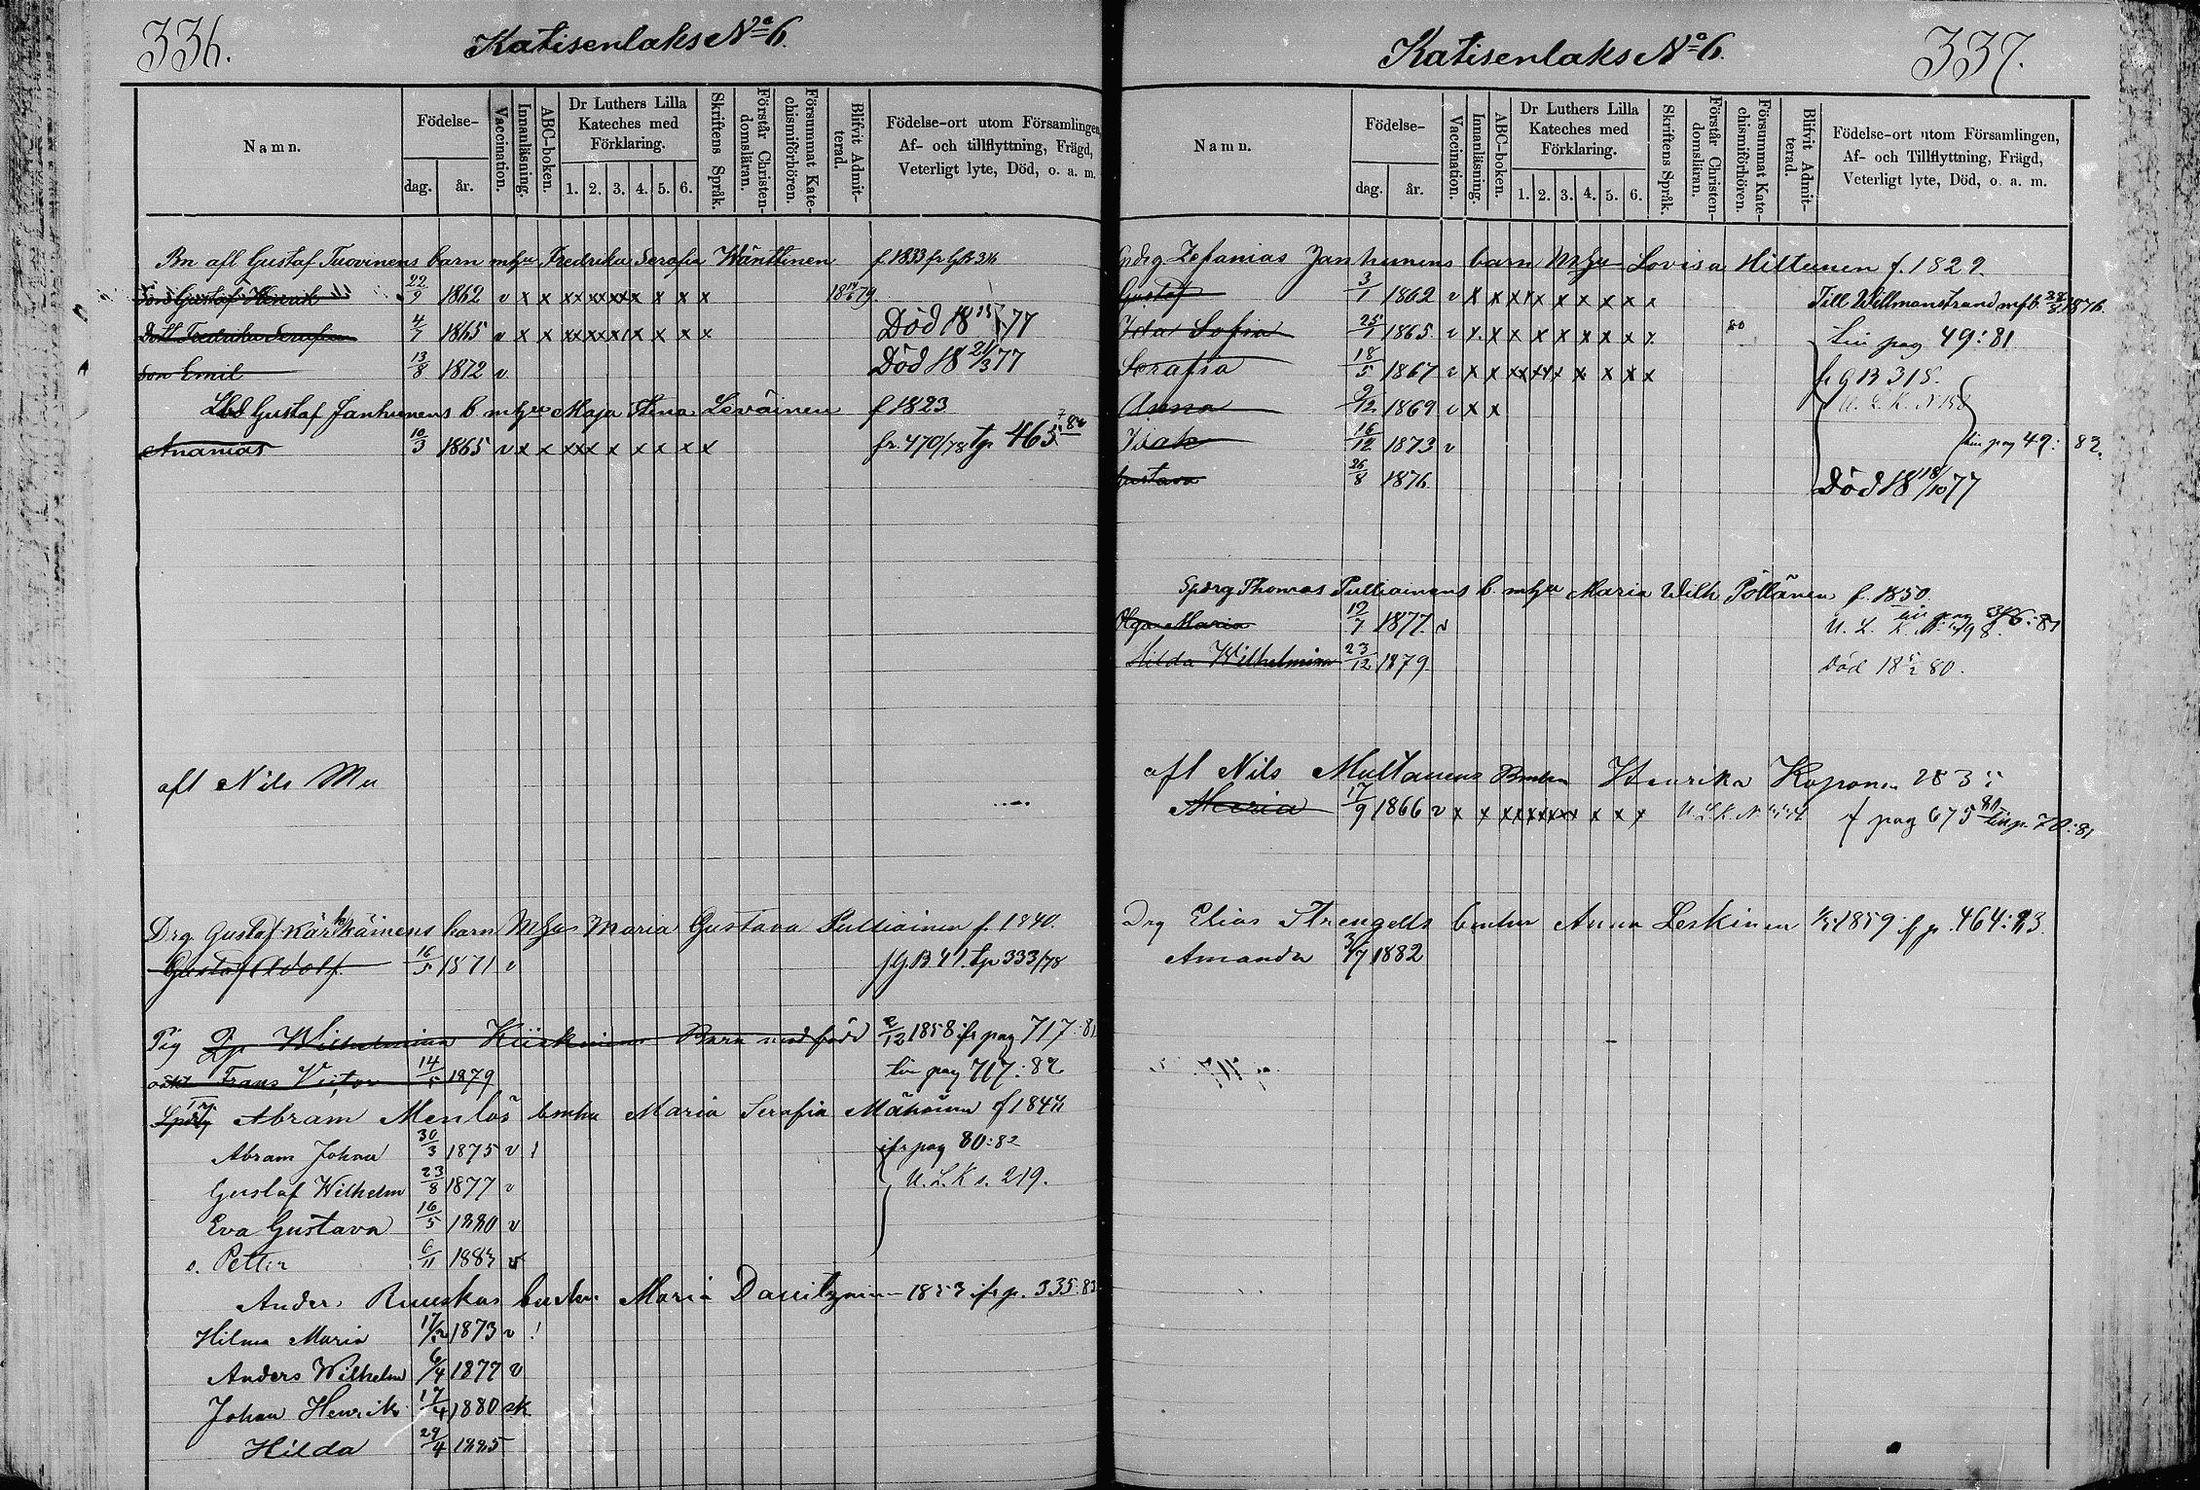 336.
Katisenlaks No 6.
Namn.
Födelse-
dag.
år.
Vaccination.
Innanläsning.
ABC-boken.
Dr Luthers Lilla
Kateches med
Förklaring.
1. 2. 3. 4. 5. 6.
Skriftens Språk.
Förstår Christen-
domsläran.
Försummat Kate-
chismiförhören.
Blifvit Admit-
terad.
Födelse-ort utom Församlingen,
Af- och tillflyttning, Frägd,
Veterligt lyte, Död, o. a. m.
Bn afl Gustaf Tuovinens barn m hu Fredrika Serafia Wänttinen f. 1833
Son Gustaf Henrik 22/9 1862 v x x x x x x x x x x x
Dott Fredrika Serafia 4/7 1865 v x x x x x x x x x x Död 18 77
Son Emil 13/8 1872 v Död 18 21/3 77
Gustaf Janhunens b. m hu Maja Stina Leväinen f 1823
Ananias 10/3 1865 v x x x x x x x x x x fr. 470/78 tp 463
afl Nils Mu
Drg. Gustaf Kärkkäinens barn m hu Maria Gustava Pulliainen f. 1840.
Gustaf Adolf. 16/5 1871 v f G B 41. tp 333/78
Pig Wilhelmina Kiiskinens Barn född 1858 ifr pag 717:81
Frans Victor 14/5 1879 tin pag 717:82
Abram Menlös Maria Serafia f 1847
Abram Johan 30/3 1875 v ifr pag 80:82
Gustaf Wilhelm 23/8 1877 v U. L. K s. 219.
Eva Gustava 16/5 1880 v
s. Petter 6/11 1883 v
Ander. Ruuskas Maria 1853 ifr p. 335:83
Hilma Maria 1873 v !
Anders Wilhelm 6/4 1877 v
Johan Henrik 17/4 1880 sk
Hilda 29/4 1885
Katisenlaks No 6.
337.
Namn.
Födelse-
dag.
år.
Vaccination.
Innanläsning.
ABC-boken.
Dr Luthers Lilla
Kateches med
Förklaring.
1. 2. 3. 4. 5. 6.
Skriftens Språk.
Förstår Christen-
domsläran.
Försummat Kate-
chismiförhören.
Blifvit Admit-
terad.
Födelse-ort utom Församlingen,
Af- och Tillflyttning, Frägd,
Veterligt lyte, Död, o. a. m.
Zefanias Janhunens barn m hu Lovisa Hiltunen f. 1829
Gustaf 3/1 1862 v x x x x x x x x x x Till Willmanstrand 1876.
Ida Sofia 25/1 1865. v x x x x x x x x x x 80 tin pag 49:81
Serafia 18/5 1867 v x x x x x x x x x x fr G B 315.
Anna 9/12 1869 v x x
Isak 16/12 1873 v tin pag 49: 82.
Gustava 26/8 1876. Död 18 18/10 77
Spdrg Thomas Pulliainens b. m hu Maria Wilh Pöllänen f. 1850.
Olga Maria 19/7 1877. v
Hilda Wilhelmina 23/12 1879 Död 18 80.
afl Nils Multanens Henrika Koponen
Maria 17/9 1866 v x x x x x x x x x x f pag 675
Drg Elias Strengells Anna Leskinen 1859 f p. 464:83.
Amanda 1882